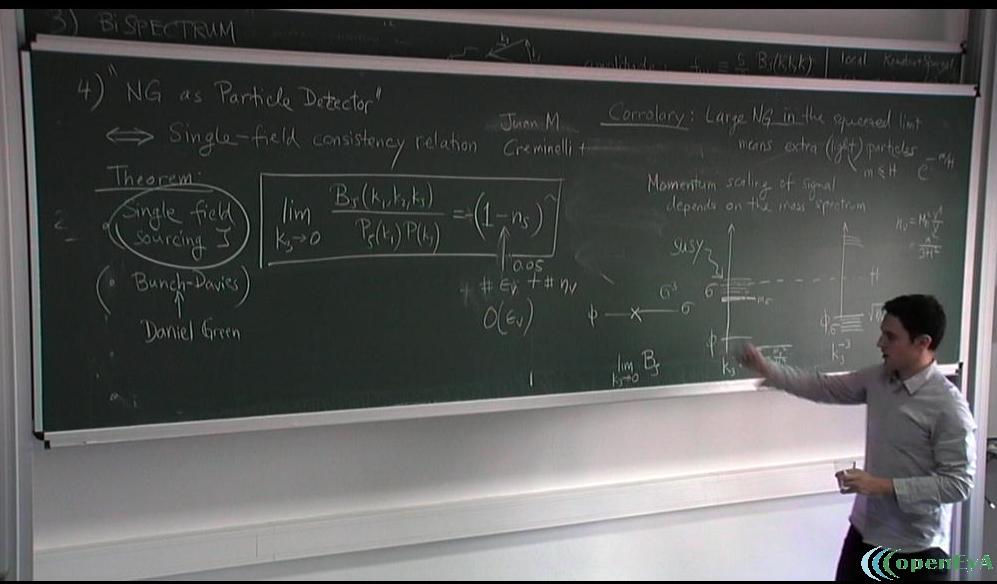 3) BiSPECTRUM
B_ζ(k,k,k) | local
4) "NG as Particle Detector"
⟺ Single-field consistency relation
Juan M
Creminelli +
Theorem:
• Single field
sourcing ζ
(• Bunch-Davies)
↑
Daniel Green
lim k₃→0 B_ζ(k₁,k₂,k₃) / P_ζ(k₁) P(k₃) = (1-n_s)
0.05
# ε_v + # η_v
O(ε_v)
Corrolary: Large NG in the squeezed limit
means extra (light) particles
m ≲ H
Momentum scaling of signal
depends on the mass spectrum
SUSY
σ
φ
φ —×— σ
σ³
lim k₃→0 B_ζ
H
φ
σ
k₃⁻³
openEyA